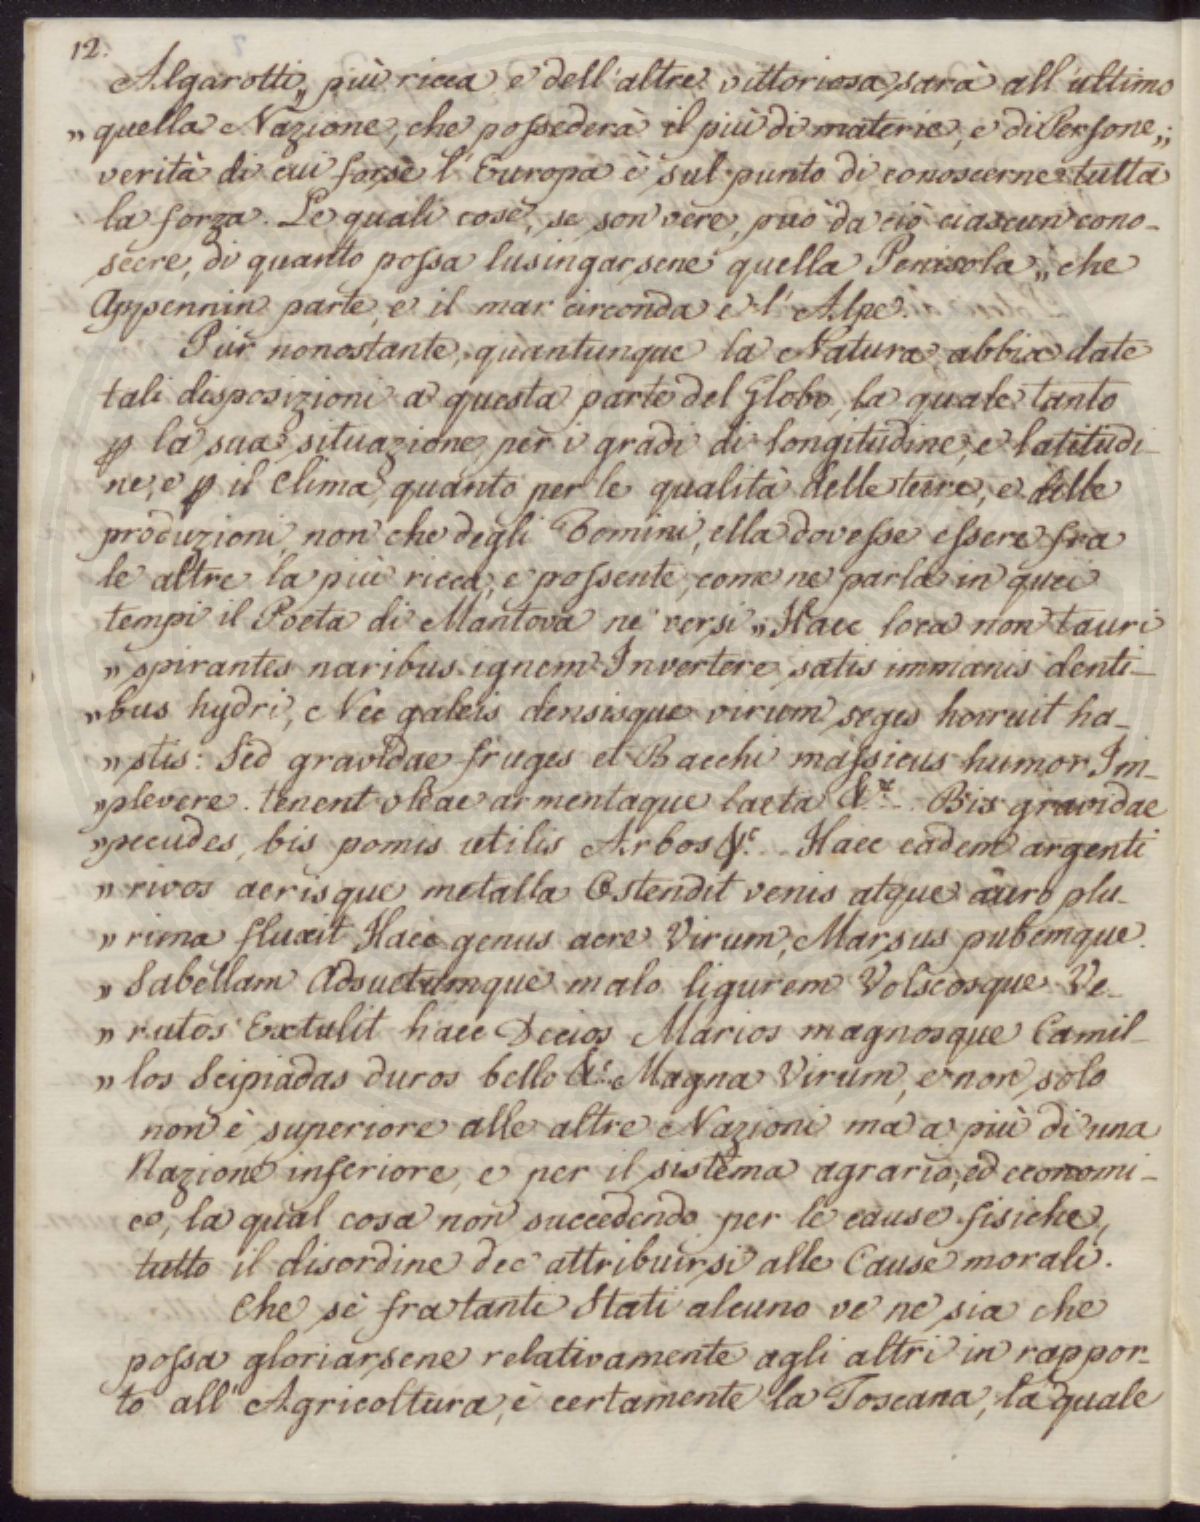 12.
Algarotti „ più ricca e dell'altre vittoriosa sarà all'ultimo
„ quella Nazione, che possederà il più di materie, e di Persone „;
verità di cui forse l'Europa è sul punto di conoscerne tutta
la forza. Le quali cose, se son vere, può da ciò ciascun cono-
scere, di quanto possa lusingarsene quella Penisola „ che
Appennin parte, e il mar circonda e l'Alpe.
Pur nonostante, quantunque la Natura abbia date
tali disposizioni a questa parte del Globo, la quale tanto
ꝑ la sua situazione per i gradi di longitudine, e latitudi-
ne, e ꝑ il Clima, quanto per le qualità delle terre, e delle
produzioni, non che degli Uomini, ella dovesse essere fra
le altre la più ricca, e possente, come ne parla in quei
tempi il Poeta di Mantova ne' versi „ Haec loca non tauri
„ spirantes naribus ignem Invertere satis immanis denti-
„ bus hydri, Nec galeis densisque virum seges horruit ha-
„ stis: Sed gravidae fruges et Bacchi massicus humor Im-
„ plevere. tenent oleae armentaque laeta &c. Bis gravidae
„ pecudes, bis pomis utilis Arbos &c. Haec eadem argenti
„ rivos aerisque metalla Ostendit venis atque auro plu-
„ rima fluxit Haec genus acre Virum, Marsus pubemque
„ Sabellam Adsuetumque malo ligurem Volscosque Ve-
„ rutos Extulit haec Decios Marios magnosque Camil-
„ los Scipiadas duros bello &c. Magna Virum, e non solo
non è superiore alle altre Nazioni ma a più di una
Nazione inferiore, e per il sistema agrario, ed economi-
co, la qual cosa non succedendo per le cause fisiche,
tutto il disordine dee attribuirsi alle Cause morali.
Che se fra tanti Stati alcuno ve ne sia che
possa gloriarsene relativamente agli altri in rappor-
to all'Agricoltura, è certamente la Toscana, la quale